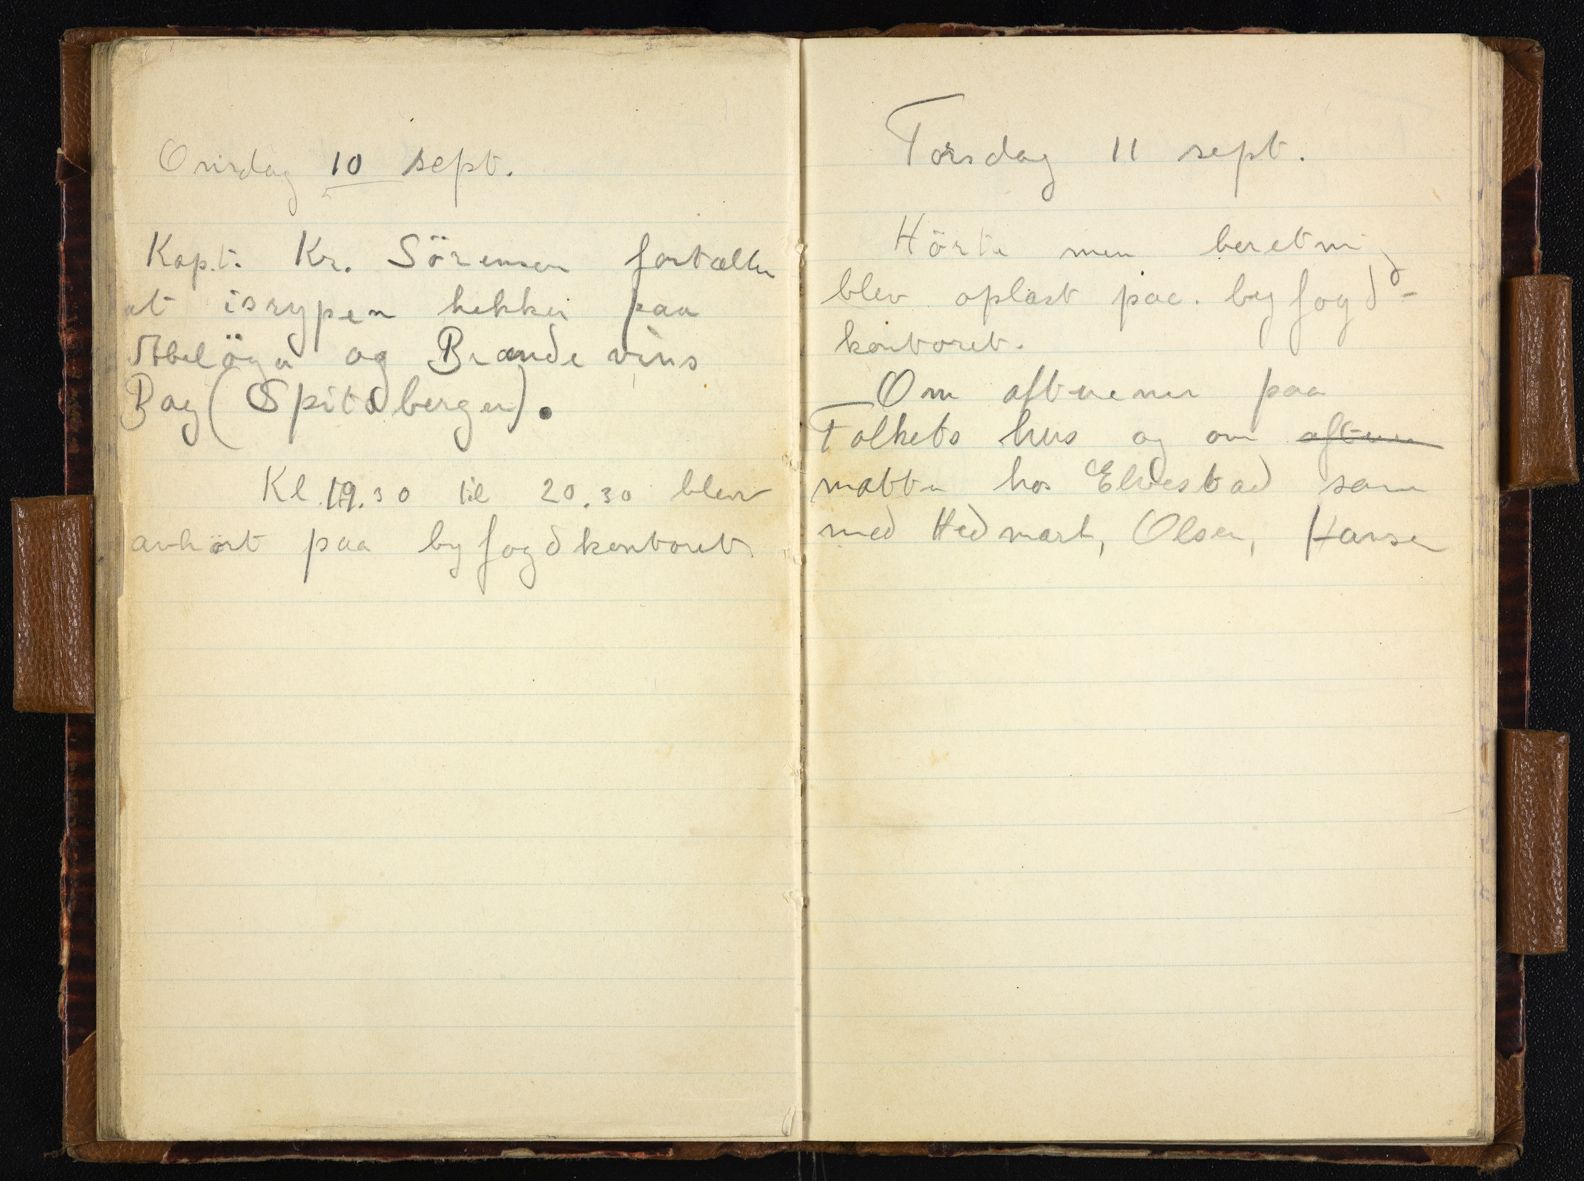 Onsdag 10 sept.
Kapt. Kr. Sörensen fortæller
at isrypen hekker paa
Abelöya og Brændevins
Bay (Spitsbergen).
Kl. 19.30 til 20.30 blev
avhört paa byfogdkontoret.
Torsdag 11 sept.
Hörte min beretning
blev oplæst paa. byfogd-
kontoret.
Om aftenen paa
Folkets hus og om aften
natten hos Elvestad sam
med Hedmark, Olsen, Hansen